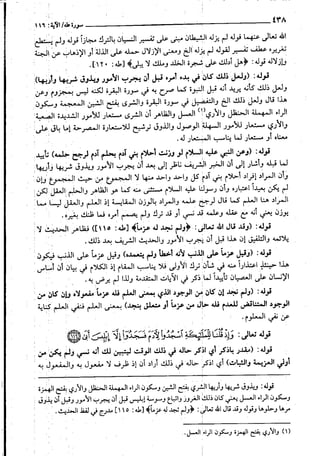 ٤٣٨ سورة طه/ الآية: ١١٦
الله تعالى عنهما قوله لم يزله الشيطان مبني على تفسير النسيان بالترك مجازاً قوله ولم يستطع
تغريره عطف تفسير لقوله لم يزله الخ ومعنى الإزلال حمله على الذلة أو الإذهاب عن الجنة
وإزلاله قوله: ﴿هل أدلك على شجرة الخلد وملك لا يبلى﴾ [طه: ١٢٠].
قوله: (ولعل ذلك كان في بدء أمره قبل أن يجرب الأمور ويذوق شربها وأريها)
ولعل ذلك كأنه يريد أنه قبل النبوة كما صرح به في سورة البقرة لكنه ليس بمجزوم وعن
هذا قال ولعل ذلك الخ والتفصيل في سورة البقرة والشرى بفتح الشين المعجمة وسكون
الراء المهملة الحنظل والأري(١) العسل والظاهر أن الشرى مستعار للأمور الشديدة الصعبة
والأري مستعار للأمور السهلة الوصول والذوق ترشيح للاستعارة المصرحة إما باق على
معناه أو مستعار لما يناسب المستعار له.
قوله: (وعن النبي عليه السلام لو وزنت أحلام بني آدم بحلم آدم لرجح حلمه) تأييد
لما قبله وأشار إلى أن الخبر الشريف ناظر إلى بعد أن يجرب الأمور ويذوق شربها وأريها
وأن المراد إفراد أحلام بني آدم كل واحد واحد منها لا المجموع من حيث المجموع وإن
لم يكن بعيداً اعتباره وأن رسولنا عليه السلام مستثنى منه كما هو الظاهر والحلم العقل لكن
المراد هنا العلم كما قال لرجح علمه والمراد بالوزن المقايسة إذ الحلم والعقل ليسا مما
يوزن يعني أنه مع عقله وعلمه قد نسي أو قد ترك ولم يصمم أمره فما ظنك بغيره.
قوله: (وقد قال الله تعالى: ﴿ولم نجد له عزماً﴾) [طه: ١١٥] فظاهر الحديث لا
يلائمه والتلفيق إن هذا قبل أن يجرب الأمور والحديث الشريف بعد ذلك.
قوله: (وقيل عزماً على الذنب لأنه أخطأ ولم يتعمده) وقيل عزماً على الذنب فيكون
هذا حينئذ اعتذاراً منه في شأن ترك الأولى فلا يناسب المقام إذ الكلام في بيان أن أساس
الإنسان على العصيان تأييداً لما ذكر في الآيات المتقدمة ولذا لم يرض به.
قوله: (ولم نجد إن كان من الوجود الذي بمعنى العلم فله عزماً مفعولاه وإن كان من
الوجود المناقض للعدم فله حال من عزماً أو متعلق بنجد) بمعنى العلم فنفي العلم كناية
عن نفي المعلوم.
قوله تعالى: وَإِذْ قُلْنَا لِلْمَلَائِكَةِ اسْجُدُوا لِآدَمَ فَسَجَدُوا إِلَّا إِبْلِيسَ أَبَى
قوله: (مقدر باذكر أي اذكر حاله في ذلك الوقت ليتبين لك أنه نسي ولم يكن من
أولي العزيمة والثبات) أي اذكر حاله في ذلك أراد أن إذ ظرف لا مفعول به والمفعول به
قوله: ويذوق شربها وأريها الشري بفتح الشين وسكون الراء الحنظل والأري بفتح الهمزة
وسكون الراء العسل يعني كان ذلك الغرور واتباع وسوسة إبليس قبل أن يجرب الأمور وقبل أن يذوق
مرها وحلوها وقوله وقد قال الله تعالى: ﴿ولم نجد له عزماً﴾ [طه: ١١٥] مدرج في لفظ الحديث.
(١) والأري بفتح الهمزة وسكون الراء العسل.